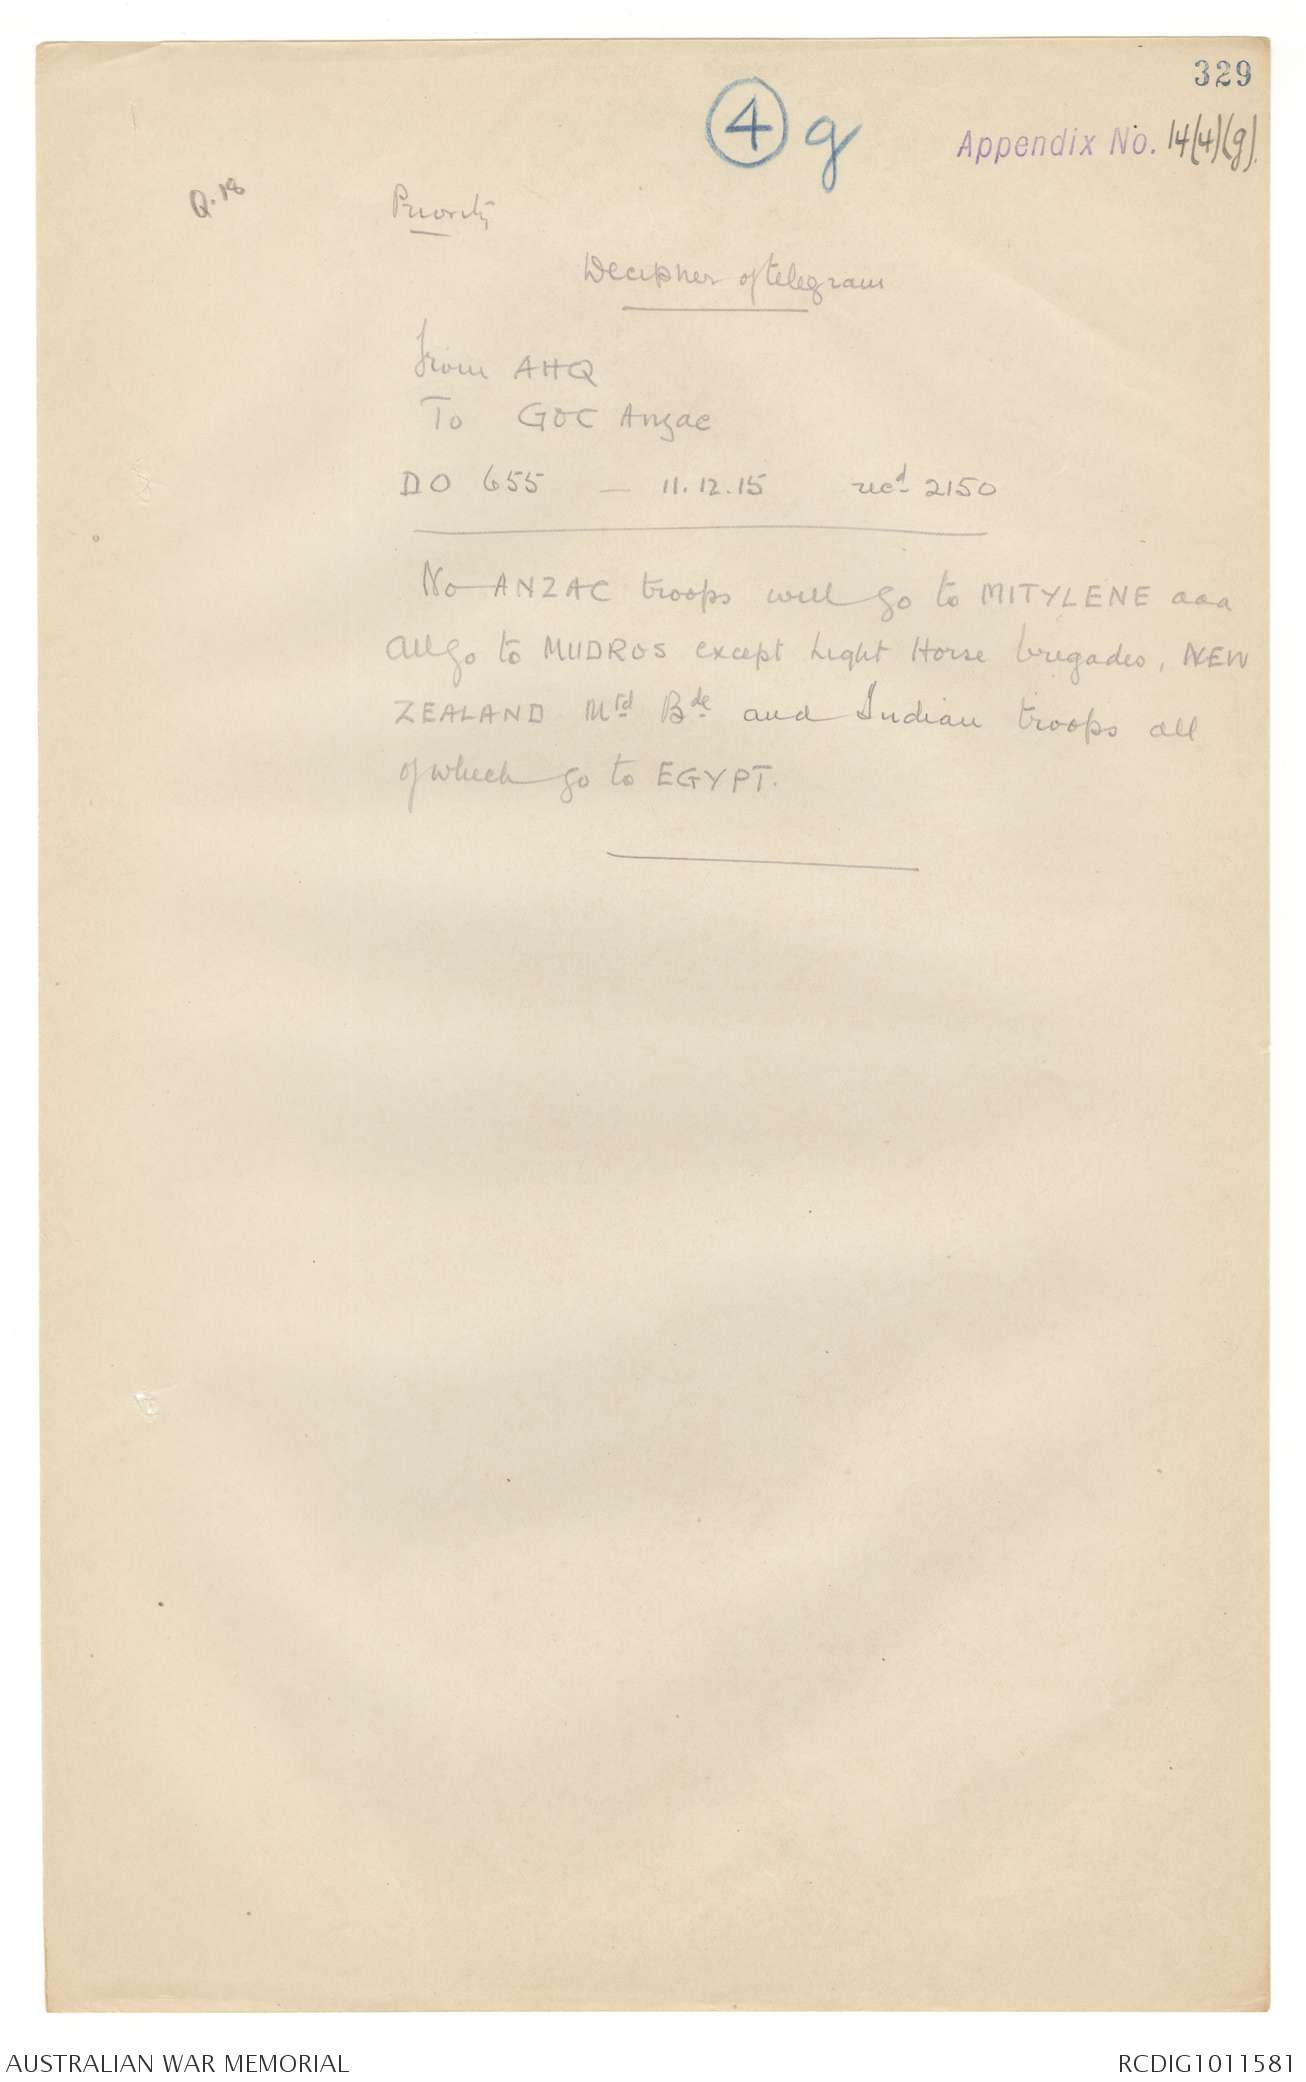 329
4 g
Appendix No. 14(4)(g).
Q.18
Priority
Decipher of telegram
from AHQ
To GOC Anzac
DO 655 — 11.12.15 recd 2150
No ANZAC troops will go to MITYLENE aaa
All go to MUDROS except Light Horse brigades, NEW
ZEALAND Mtd Bde and Indian troops all
of which go to EGYPT.
AUSTRALIAN WAR MEMORIAL
RCDIG1011581